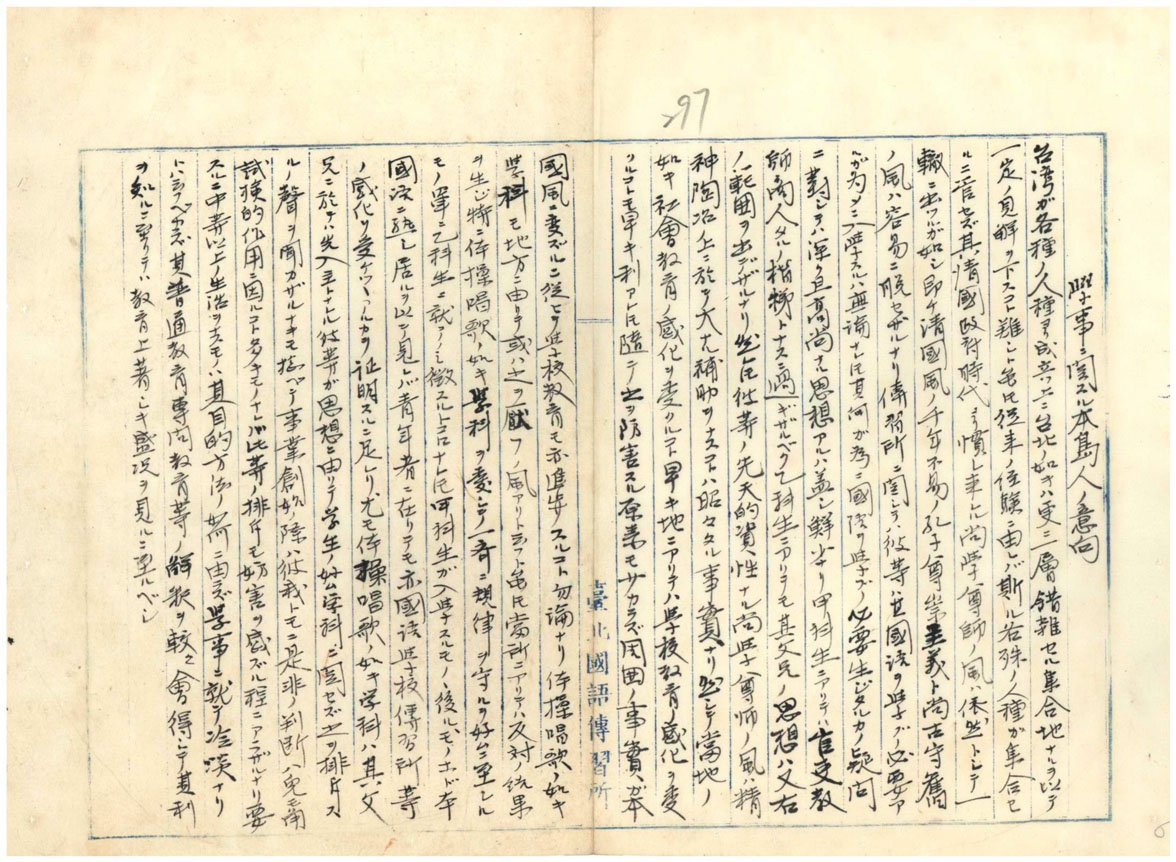 297
學事ニ関スル本島人ノ意向
台湾ガ各種ノ人種ヨリ成立シ台北ノ如キハ更ニ一層錯雑セル集合地ナルヲ以テ
一定ノ見解ヲ下スコト難シト雖モ従来ノ経験ニ由レバ斯ル若殊ノ人種ガ集合セ
ルニ管セズ其清國政府時代ヨリ慣レ来ル尚學尊師ノ風ハ依然トシテ一
轍ニ出ヅルガ如シ即チ清國風ノ千年不易ノ孔子尊崇主義ト尚古守舊
ノ風ハ容易ニ脱セザルナリ傳習所ニ関シテハ彼等ハ其國語ノ學ブ必要ア
ルガ為メニ入學スルハ無論ナレトモ其何ガ為ニ國語ヲ學ブノ必要生ジタルカノ疑問
ニ對シテハ深ク且高尚ナル思想アルハ蓋シ鮮少ナリ甲科生ニアリテハ官吏教
師商人タルノ楷梯トナスニ過ギザルベク乙科生ニアリテモ其父兄ノ思想ハ又右
ノ範囲ヲ出デザルナリ然レトモ彼等ノ先天的資性ナル尚學尊師ノ風ハ精
神陶冶上ニ於テ大ナル補助ヲナスコトハ昭々タル事實ナリ然シテ當地ノ
如キ社會教育ノ感化ヲ受クルコト早キ地ニアリテハ學校教育ノ感化ヲ受
クルコトモ早キ利アレトモ随テ之ヲ防害スル原素モサカラズ周囲ノ事實ガ本
臺北國語傳習所
國風ニ変ズルニ従ヒテ學校教育モ亦進歩スルコト勿論ナリ体操唱歌ノ如キ
學科モ地方ニ由リテ或ハ之ヲ厭フノ風アリト云フト雖モ當所ニアリテハ反対結果
ヲ生ジ特ニ体操唱歌ノ如キ學科ヲ愛シテ一斉ニ規律ヲ守ルヲ好ムニ至レル
モノ單ニ乙科生ニ就テノミ徴スルトコロナレトモ甲科生ガ入學スルモノハ後ルヽモノホド本
國語ニ熟シ居ルヲ以テ見レバ青年者ニ在リテモ亦國語學校傳習所等
ノ感化ヲ受ケツヽアルカヲ証明スルニ足レリ尤モ体操唱歌ノ如キ学科ハ其父
兄ニ於テハ先入主トナレル彼等ガ思想ニ由リテ学生ノ好ム学科ニ関セズ之ヲ排斥ス
ルノ聲ヲ聞カザルナキモ總ベテ事業創始ノ際ハ彼我トモニ是非ノ判断ハ兎モ角
試撿的作用ニ因ルコト多キモノナレバ此等ノ排斥モ妨害ヲ感ズル程ニアラザルナリ要
スルニ中等以上ノ生活ヲナスモノハ其目的方法ノ如何ニ由ラズ學事ニ就テ冷淡ナリ
トハ云フベカラズ其普通教育専門教育等ノ解釈ヲ較々會得シテ其利
ヲ知ルニ至リテハ教育上著シキ盛況ヲ見ルニ至ルベシ